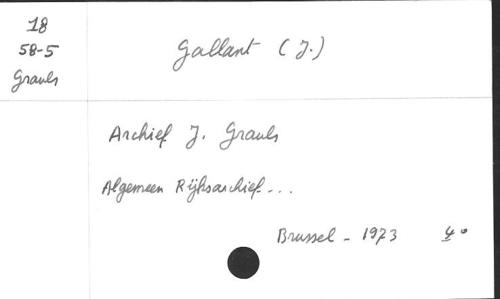 18
58-5
Grauls
Gallant (J.)
Archief J. Grauls
Algemeen Rijksarchief...
Brussel - 1973 4°